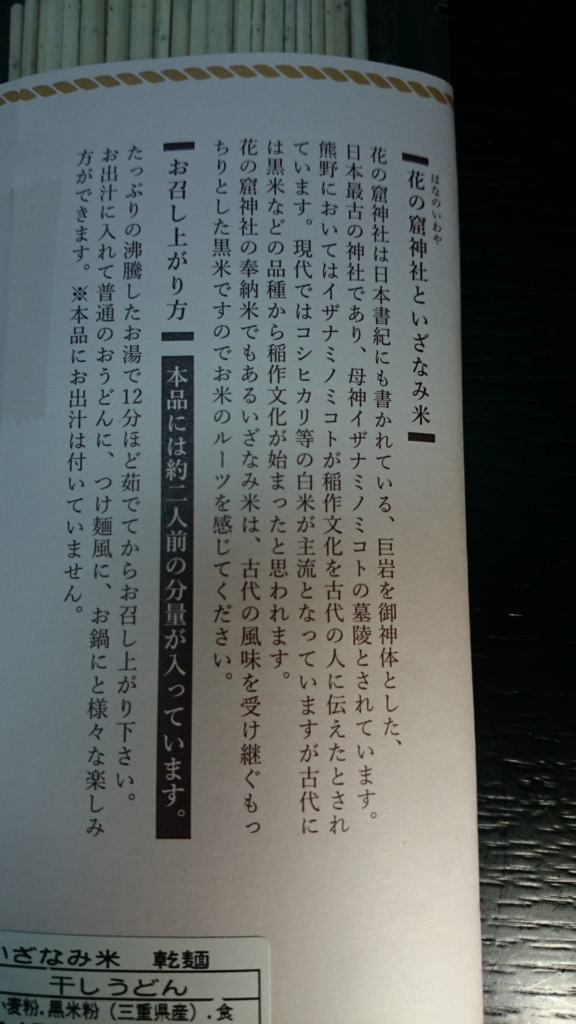 はなのいわや
花の窟神社といざなみ米
花の窟神社は日本書紀にも書かれている、巨岩を御神体とした、
日本最古の神社であり、母神イザナミノミコトの墓陵とされています。
熊野においてはイザナミノミコトが稲作文化を古代の人に伝えたとされ
ています。現代ではコシヒカリ等の白米が主流となっていますが古代に
は黒米などの品種から稲作文化が始まったと思われます。
花の窟神社の奉納米でもあるいざなみ米は、古代の風味を受け継ぐもっ
ちりとした黒米ですのでお米のルーツを感じてください。
お召し上がり方
本品には約二人前の分量が入っています。
たっぷりの沸騰したお湯で12分ほど茹でてからお召し上がり下さい。
お出汁に入れて普通のおうどんに、つけ麺風に、お鍋にと様々な楽しみ
方ができます。※本品にお出汁は付いていません。
いざなみ米 乾麺
干しうどん
小麦粉.黒米粉(三重県産).食